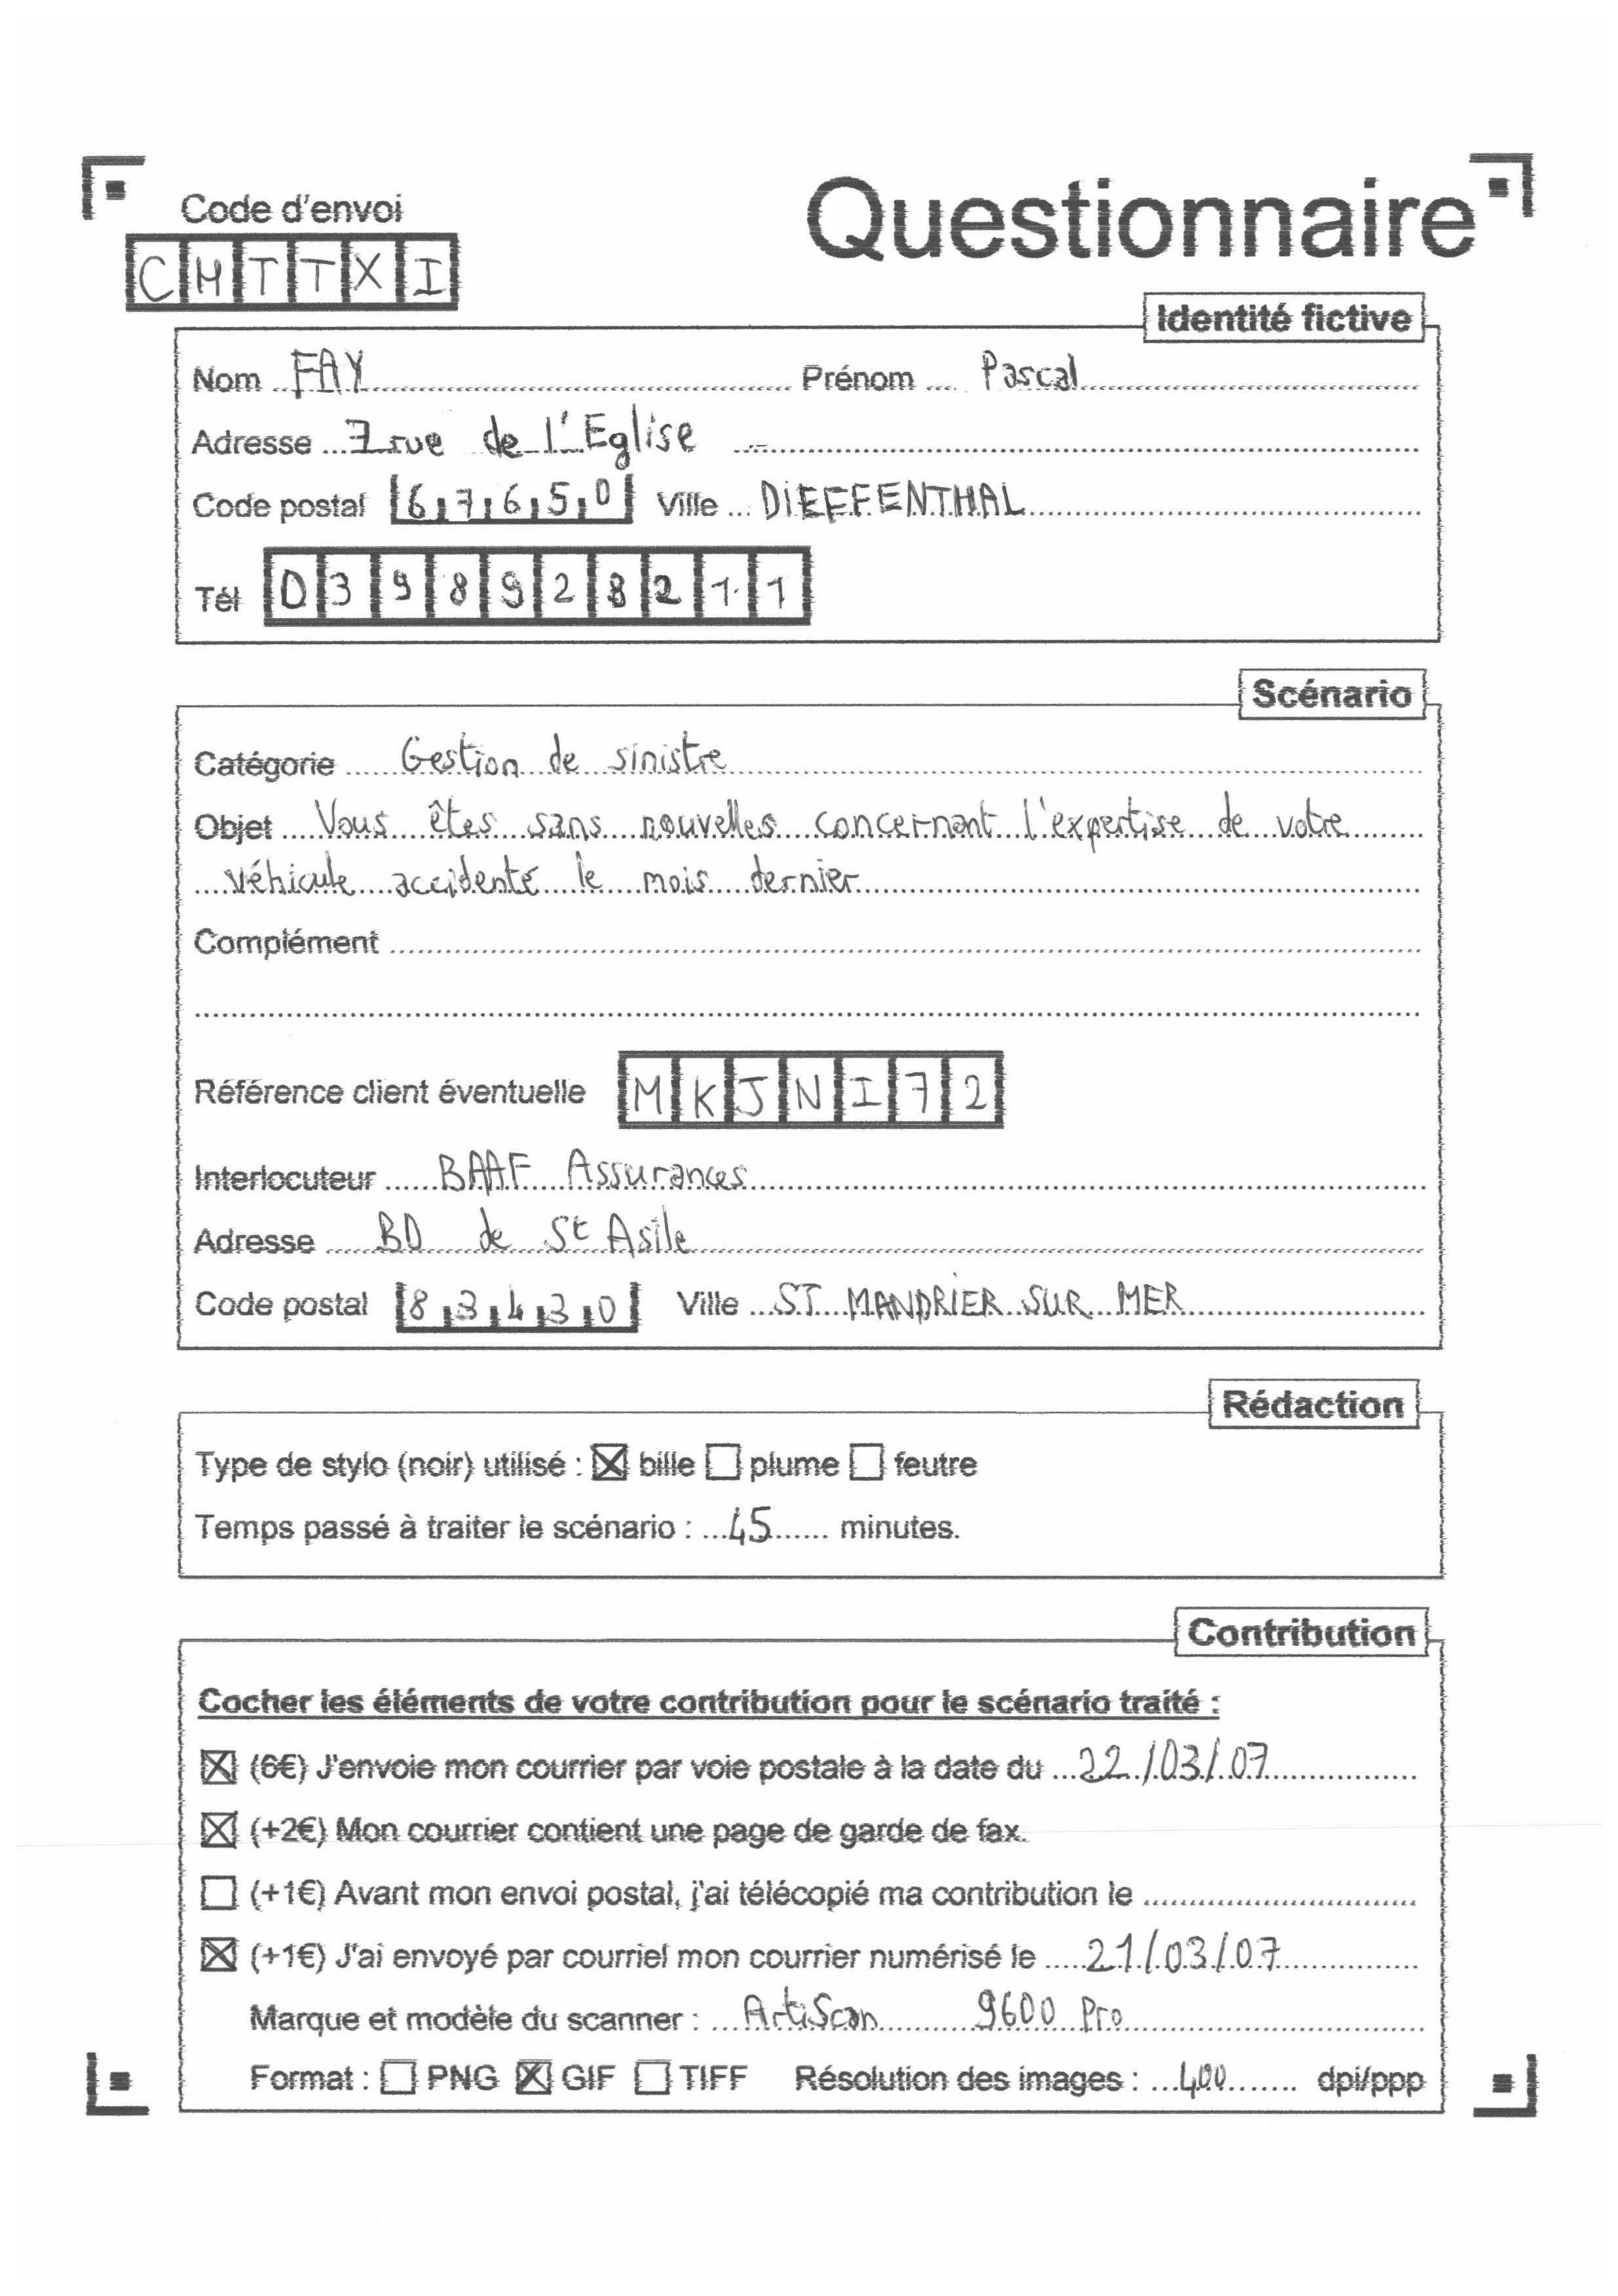 Code d'envoi
Questionnaire
CHTTXI
Identité fictive
Nom FAY Prénom Pascal
Adresse 7 rue de l'Eglise
Code postal 67650 Ville DIEFFENTHAL
Tél 0398928211
Scénario
Catégorie Gestion de sinistre
Objet Vous êtes sans nouvelles concernant l'expertise de votre
véhicule accidenté le mois dernier
Complément
Référence client éventuelle MKJNI72
Interlocuteur BAAF Assurances
Adresse BD de St Asile
Code postal 83430 Ville ST MANDRIER SUR MER
Rédaction
Type de stylo (noir) utilisé : ☒ bille ☐ plume ☐ feutre
Temps passé à traiter le scénario : 45 minutes.
Contribution
Cocher les éléments de votre contribution pour le scénario traité :
☒ (6€) J'envoie mon courrier par voie postale à la date du 22/03/07
☒ (+2€) Mon courrier contient une page de garde de fax.
☐ (+1€) Avant mon envoi postal, j'ai télécopié ma contribution le
☒ (+1€) J'ai envoyé par courriel mon courrier numérisé le 21/03/07
Marque et modèle du scanner : ArtiScan 9600 Pro
Format : ☐ PNG ☒ GIF ☐ TIFF Résolution des images : 400 dpi/ppp